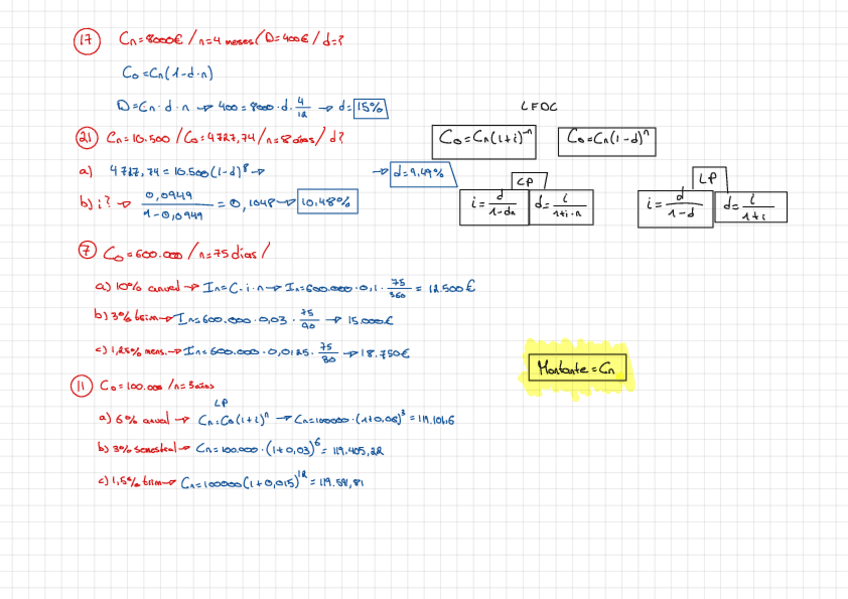 17 Cn=8000€/n=4 meses/D=400€/d=?
C0=Cn(1-d·n)
D=Cn·d·n → 400=8000·d·4/12 → d=15%
LFDC
C0=Cn(1+i)^-n C0=Cn(1-d)^n
21 Cn=10.500/C0=4727,74/n=8años/d?
a) 4727,74=10.500(1-d)^8 → → d=9,49%
b) i? → 0,0949/1-0,0949 = 0,1048 → 10,48%
CP
i=d/1-dn d=i/1+i·n
LP
i=d/1-d d=i/1+i
7 C0=600.000/n=75 días/
a) 10% anual → In=C·i·n → In=600.000·0,1·75/360 = 12.500€
b) 3% trim → In=600.000·0,03·75/90 → 15.000€
c) 1,25% mens. → In=600.000·0,0125·75/30 → 18.750€
Montante=Cn
11 C0=100.000/n=3años
LP
a) 6% anual → Cn=C0(1+i)^n → Cn=100000·(1+0,06)^3 = 119.101,6
b) 3% semestral → Cn=100.000·(1+0,03)^6 = 119.405,22
c) 1,5% trim → Cn=100000(1+0,015)^12 = 119.561,81